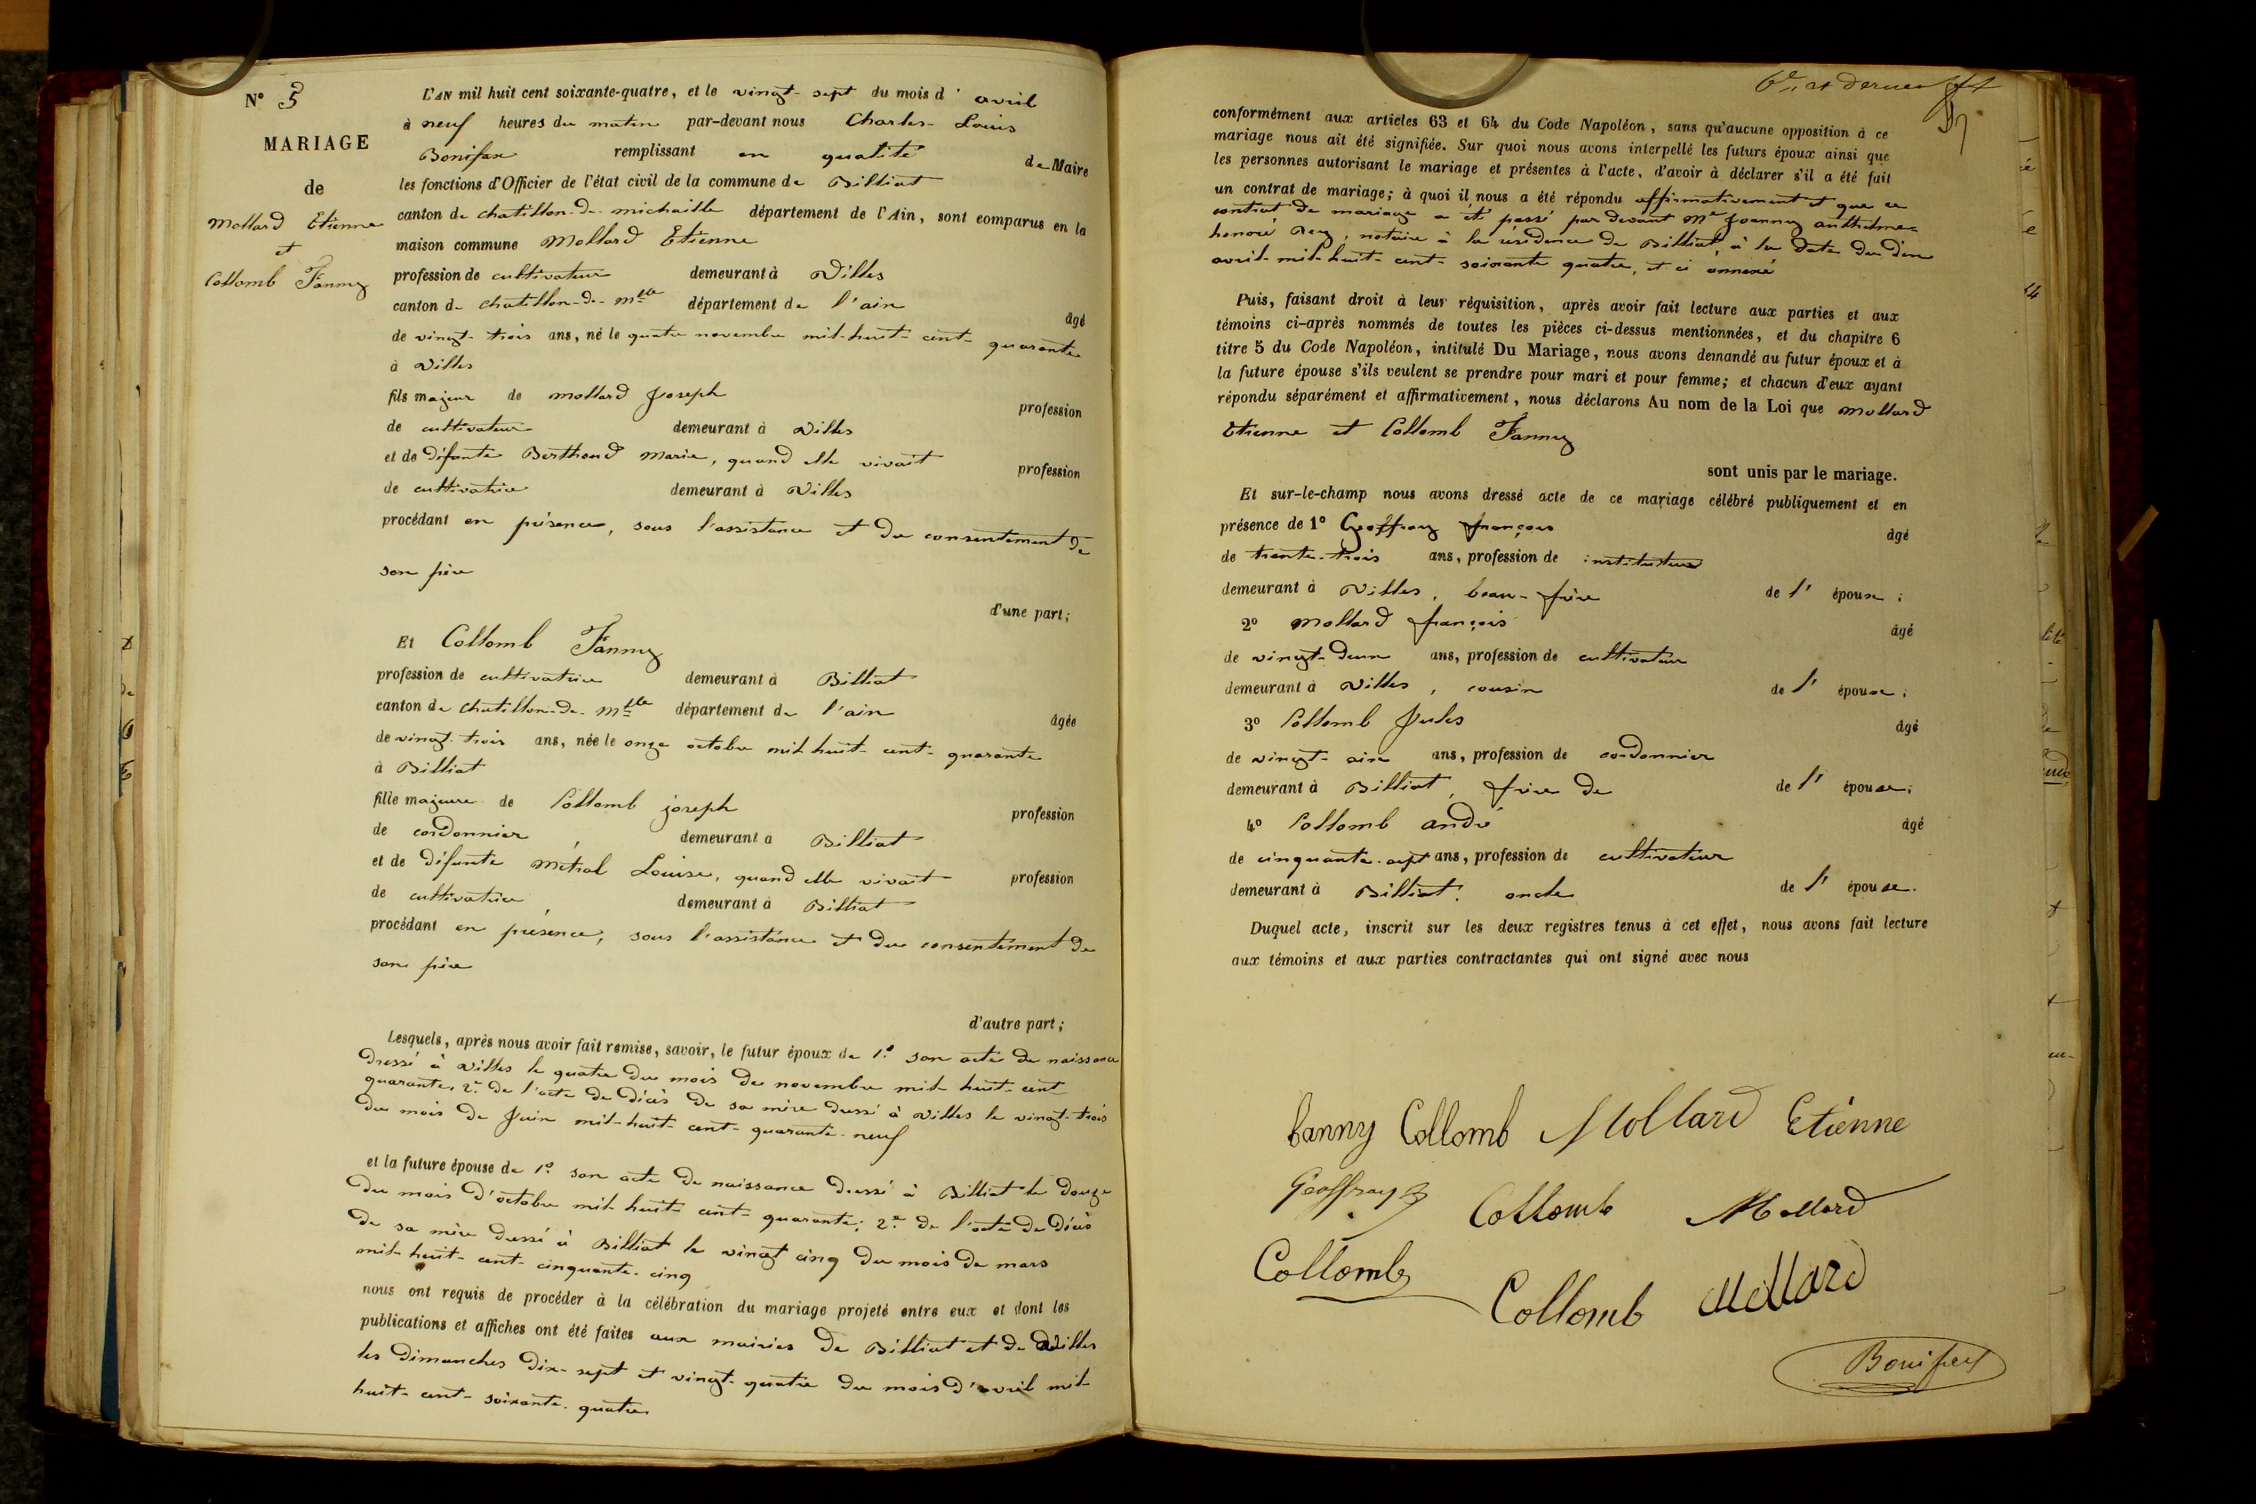 N° 5
MARIAGE
de
Mollard Etienne
et
Collomb Fanny
L'AN mil huit cent soixante-quatre, et le vingt-sept du mois d'avril
à neuf heures du matin par-devant nous Charles-Louis
Bonifax remplissant en qualité de Maire
les fonctions d'Officier de l'état civil de la commune de Billiat
canton de chatillon-de-michaille département de l'Ain, sont comparus en la
maison commune Mollard Etienne
profession de cultivateur demeurant à Villes
canton de chatillon-de-mlle département de l'ain âgé
de vingt-trois ans, né le quatre novembre mil-huit-cent-quarante
à Villes
fils majeur de mollard Joseph profession
de cultivateur demeurant à Villes
et de défunte Berthoud Marie, quand elle vivait profession
de cultivatrice demeurant à Villes
procédant en présence, sous l'assistance et du consentement de
son père
d'une part;
Et Collomb Fanny
profession de cultivatrice demeurant à Billiat
canton de chatillon-de-mlle département de l'ain âgée
de vingt-trois ans, née le onze octobre mil huit-cent-quarante
à Billiat
fille majeure de Collomb joseph profession
de cordonnier demeurant à Billiat
et de défunte Métral Louise, quand elle vivait profession
de cultivatrice demeurant à Billiat
procédant en présence, sous l'assistance et du consentement de
son père
d'autre part;
Lesquels, après nous avoir fait remise, savoir, le futur époux de 1° son acte de naissance
dressé à Villes le quatre du mois de novembre mil huit-cent
quarante, 2° de l'acte de décès de sa mère dressé à Villes le vingt-trois
du mois de Juin mil-huit-cent-quarante-neuf
et la future épouse de 1° son acte de naissance dressé à Billiat le douze
du mois d'octobre mil huit cent-quarante; 2° de l'acte de décès
de sa mère dressé à Billiat le vingt cinq du mois de mars
mil-huit-cent-cinquante-cinq
nous ont requis de procéder à la célébration du mariage projeté entre eux et dont les
publications et affiches ont été faites aux mairies de Billiat et de Villes
les dimanches dix-sept et vingt-quatre du mois d'avril mil
huit-cent-soixante-quatre
6e et dernier
conformément aux articles 63 et 64 du Code Napoléon, sans qu'aucune opposition à ce
mariage nous ait été signifiée. Sur quoi nous avons interpellé les futurs époux ainsi que
les personnes autorisant le mariage et présentes à l'acte, d'avoir à déclarer s'il a été fait
un contrat de mariage; à quoi il nous a été répondu affirmativement et que ce
contrat de mariage a été passé par devant Me Joanny anthelme
honoré Rey, notaire à la résidence de Billiat, à la date du dix
avril-mil-huit-cent-soixante quatre, et ci annexé
Puis, faisant droit à leur réquisition, après avoir fait lecture aux parties et aux
témoins ci-après nommés de toutes les pièces ci-dessus mentionnées, et du chapitre 6
titre 5 du Code Napoléon, intitulé Du Mariage, nous avons demandé au futur époux et à
la future épouse s'ils veulent se prendre pour mari et pour femme; et chacun d'eux ayant
répondu séparément et affirmativement, nous déclarons Au nom de la Loi que Mollard
Etienne et Collomb Fanny
sont unis par le mariage.
Et sur-le-champ nous avons dressé acte de ce mariage célébré publiquement et en
présence de 1° Geoffray françois âgé
de trente-trois ans, profession de instituteur
demeurant à Villes, beau-frère de l'épouse;
2° Mollard françois âgé
de vingt-deux ans, profession de cultivateur
demeurant à Villes, cousin de l'épouse;
3° Collomb Jules âgé
de vingt-six ans, profession de cordonnier
demeurant à Billiat, frère de de l'épouse;
4° Collomb andré âgé
de cinquante-sept ans, profession de cultivateur
demeurant à Billiat, oncle de l'épouse.
Duquel acte, inscrit sur les deux registres tenus à cet effet, nous avons fait lecture
aux témoins et aux parties contractantes qui ont signé avec nous
fanny Collomb Mollard Etienne
Geoffray Collomb Mollard
Collomb Collomb Mollard
Bonifax